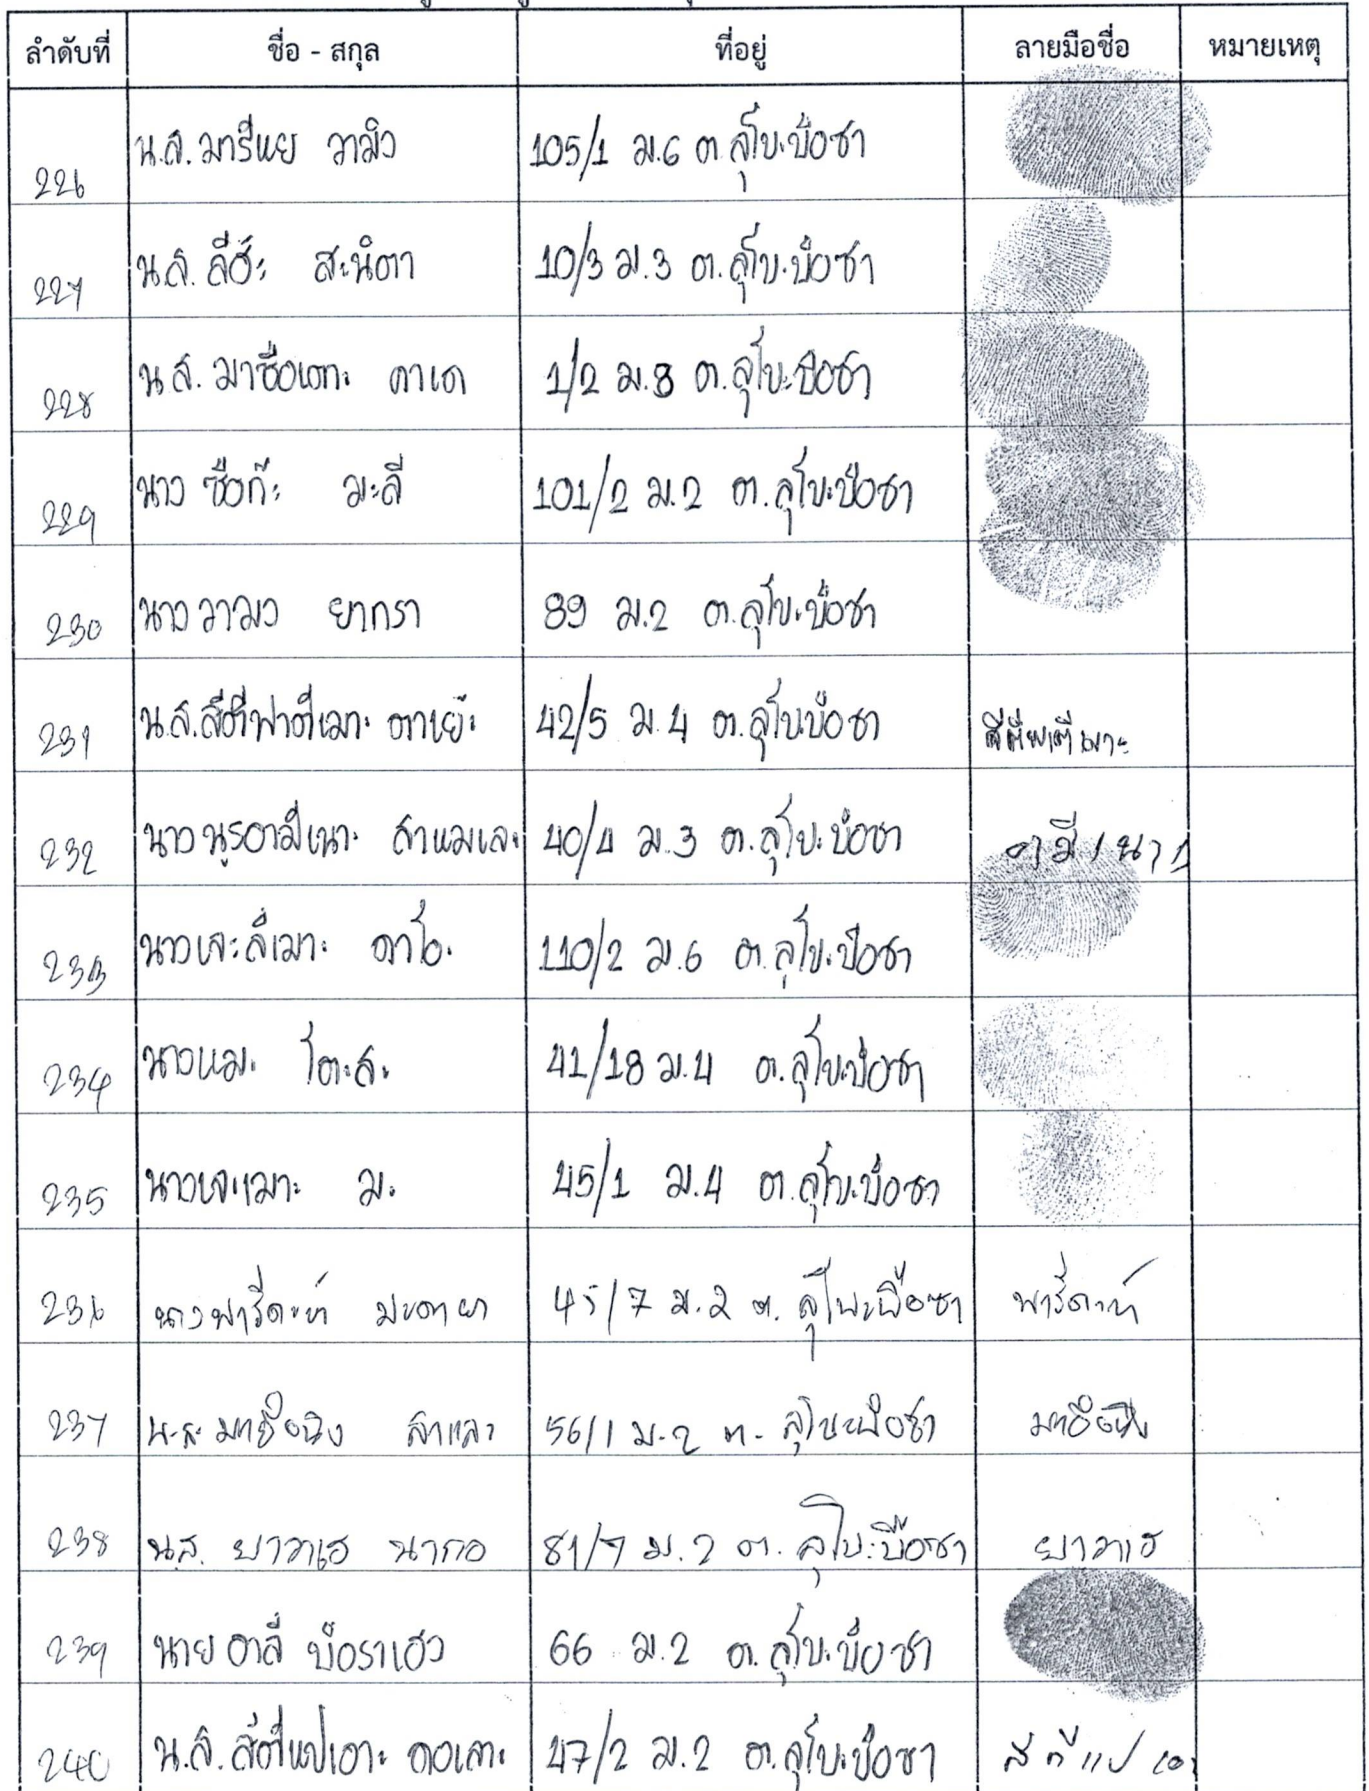 ลำดับที่ ชื่อ - สกุล ที่อยู่ ลายมือชื่อ หมายเหตุ
226 น.ส.มารีแย วามิง 105/1 ม.6 ต.สุโบะบือซา
227 น.ส.ลีฮ๊ะ สะนิตา 10/3 ม.3 ต.ลุโบะบือซา
228 น.ส. มาซือเตาะ ดาเด 1/2 ม.8 ต.ลุโบะบือซา
229 นาง ซือก๊ะ มะลี 101/2 ม.2 ต.ลุโบะบือซา
230 นางวามิง ยากรา 89 ม.2 ต.ลุโบะบือซา
231 น.ส.สีตีฟาตีเมาะ ตาเย๊ะ 42/5 ม.4 ต.ลุโบะบือซา
232 นางนูรอามีเนาะ สาแมและ 40/4 ม.3 ต.ลุโบะบือซา อามีเนาะ
233 นางเจะลีเมาะ ดาโอะ 110/2 ม.6 ต.ลุโบะบือซา
234 นางแมะ โตะสะ 41/18 ม.4 ต.ลุโบะบือซา
235 นางเจะเมาะ มะ 45/1 ม.4 ต.ลุโบะบือซา
236 นางฟารีดะห์ 45/7 ม.2 ต. ลุโบะบือซา ฟารีดะห์
237 น.ส. มาซือนิง สาและ 56/1 ม.2 ต. ลุโบะบือซา มาซือนิง
238 น.ส. ยาวาเฮ นากอ 81/7 ม.2 ต. ลุโบะบือซา ยาวาเฮ
239 นาย อาลี บือราเฮง 66 ม.2 ต.ลุโบะบือซา
240 น.ส. สีตีแปเอาะ ดอเลาะ 47/2 ม.2 ต.ลุโบะบือซา